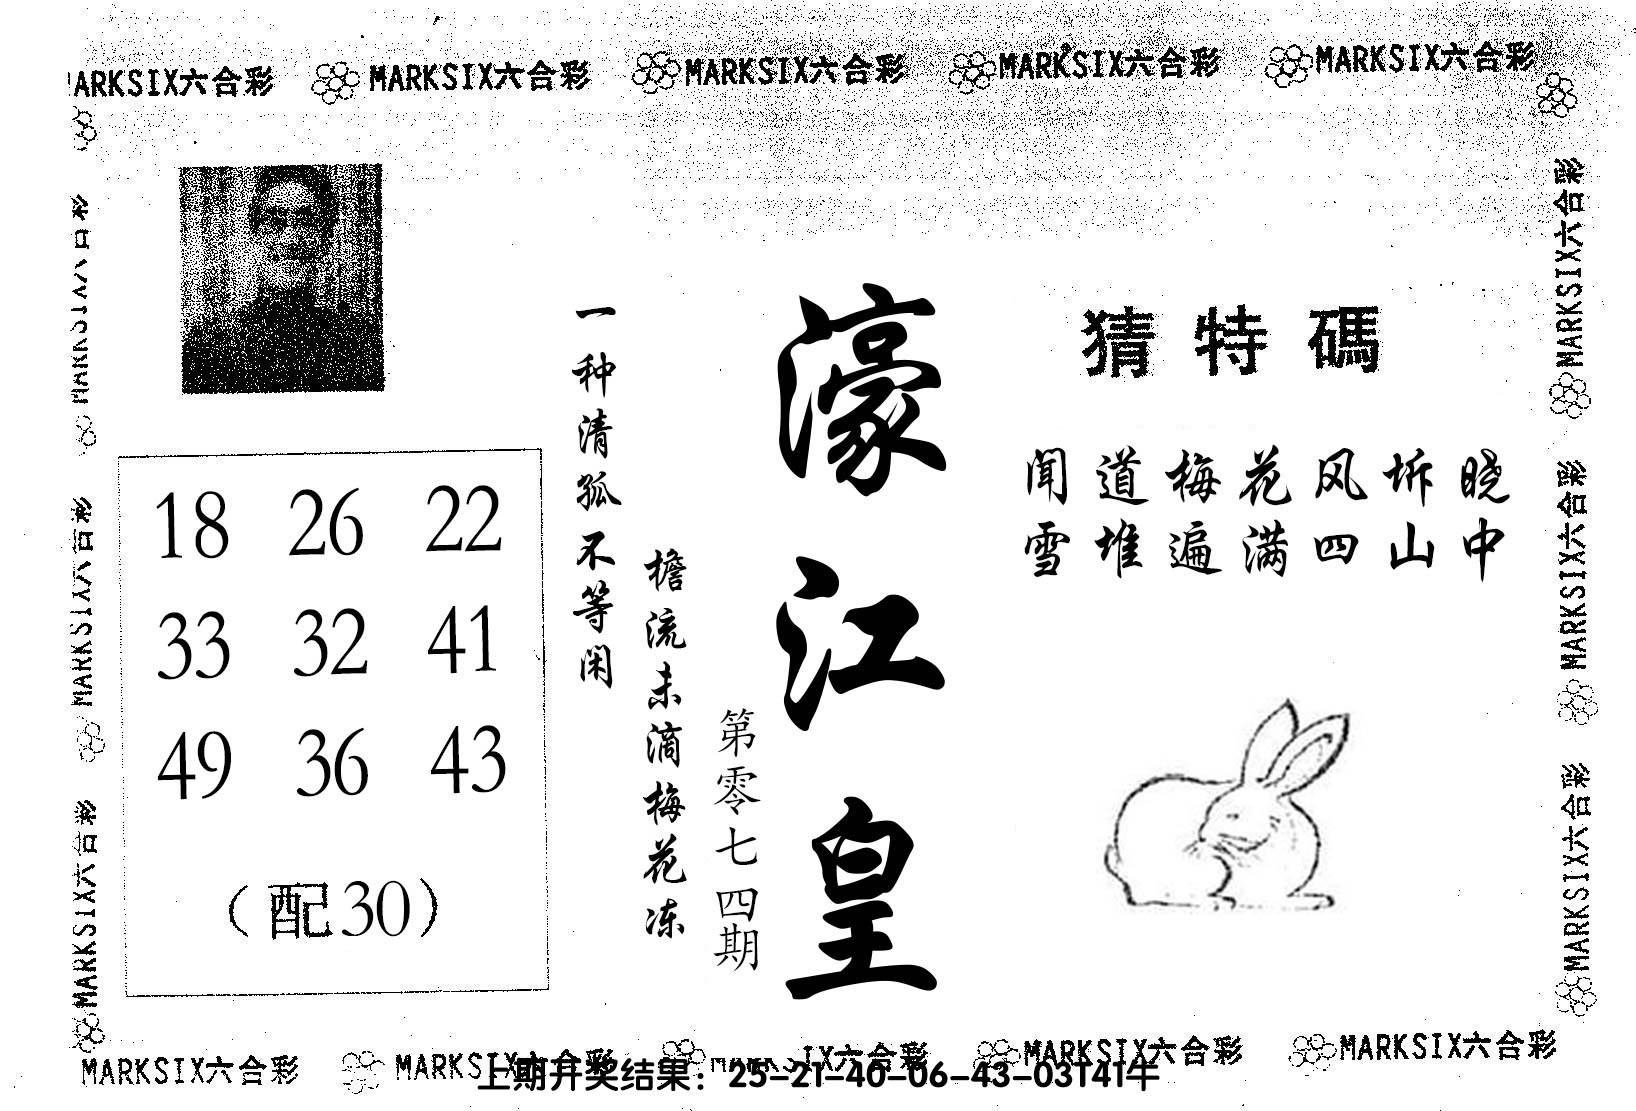 MARKSIX六合彩 MARKSIX六合彩 MARKSIX六合彩 MARKSIX六合彩 MARKSIX六合彩
MARKSIX六合彩
MARKSIX六合彩
MARKSIX六合彩
MARKSIX六合彩
MARKSIX六合彩
MARKSIX六合彩
猜特碼
闻道梅花风坼晓
雪堆遍满四山中
濠江皇
第零七四期
檐流未滴梅花冻
一种清孤不等闲
18 26 22
33 32 41
49 36 43
(配30)
MARKSIX六合彩 MARKSIX六合彩 MARKSIX六合彩 MARKSIX六合彩 MARKSIX六合彩
上期开奖结果：25-21-40-06-43-03T41牛